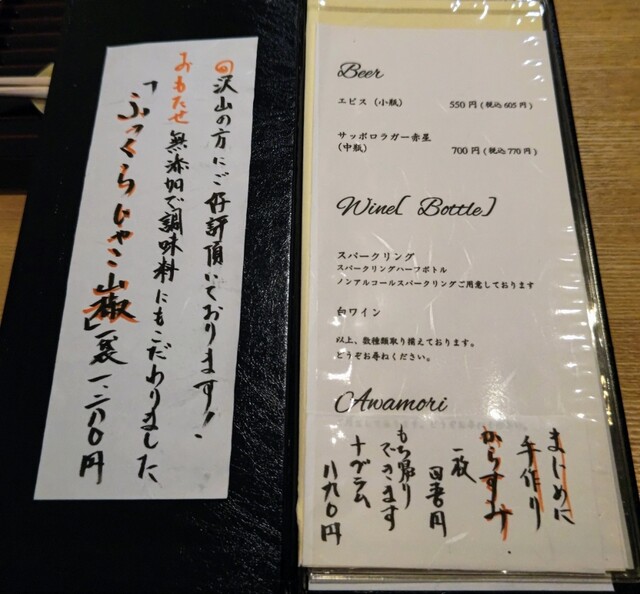 沢山の方にご好評頂いております!
おもたせ 無添加で調味料にもこだわりました
「ふっくらじゃこ山椒」一袋 一、二八〇円
Beer
エビス (小瓶) 550円 (税込605円)
サッポロラガー赤星
(中瓶) 700円 (税込770円)
Wine[ Bottle]
スパークリング
スパークリングハーフボトル
ノンアルコールスパークリングご用意しております
白ワイン
以上、数種類取り揃えております。
どうぞお尋ねください。
Awamori
まじめに
手作り
からすみ
一枚
もち帰り
できます
十グラム
八九〇円